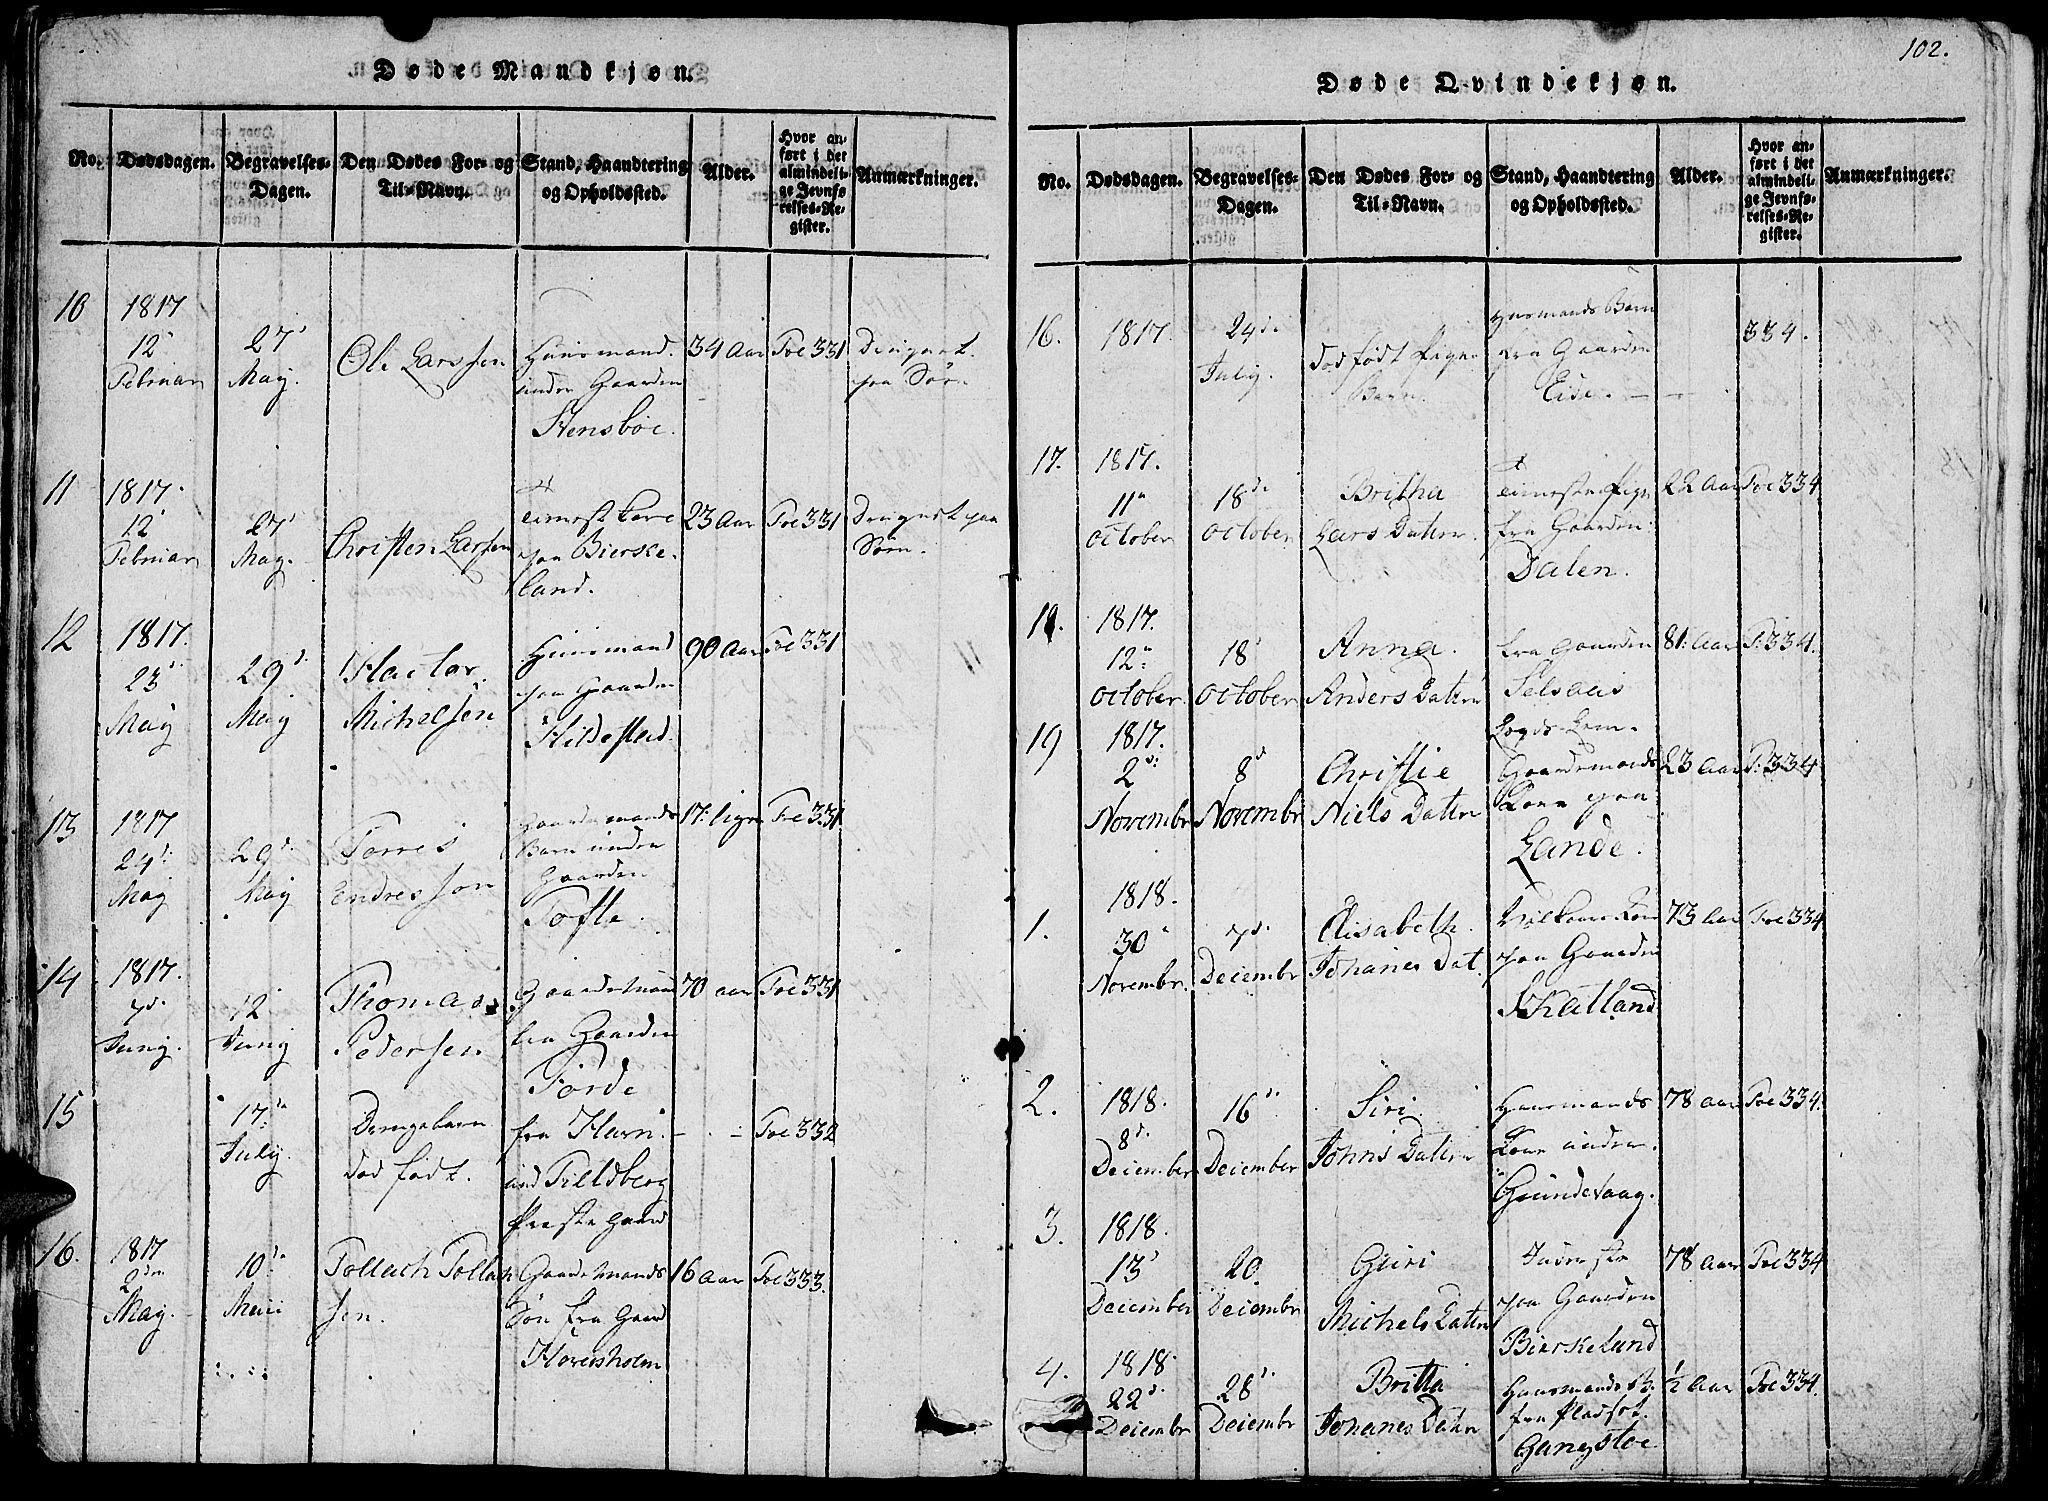 Døde Mandkjøn.
No.
Dødsdagen.
Begravelses-
Dagen.
Den Dødes For- og
Til-Navn.
Stand, Haandtering
og Opholdssted.
Alder.
Hvor an-
ført i det
almindeli-
ge Jevnfø-
relses-Re-
gister.
Anmærkninger.
10
1817
12
Februar
27
May.
Ole Larssen
Huusmand
under Gaarden
Stensböe.
34 Aar
Foe 331
paa Søen
11
1817.
12
Februar
27
May.
Christen Larsen
paa Bierke-
land.
23 Aar
Foe 331
paa
Søen.
12
1817.
23
May
29
May
Hactor
Michelsen
Huusmand
paa Gaarden
Hildestad.
90 Aar
Foe 331
13
1817
24
May
29
May
Torres
Endresson
Gaardemands
Barn under
Gaarden
Tofte.
17
Foe 331
14
1817.
7d.
Juny.
12
Juny
Thomas
Pedersen
Gaardemand
fra Gaarden
Förde
70 aar
Foe 331
15
17
July.
Drengebarn
död födt.
fra
Præste Gaard
Foe 332
16.
1817
2den
May.
10
Maii
Tollach Tollach
sen.
Gaardemands
Søn fra Gaard
Hovdsholm
16 aar
Foe 333.
102.
Døde Qvindekjøn.
No.
Dødsdagen.
Begravelses-
Dagen.
Den Dødes For- og
Til-Navn.
Stand, Haandtering
og Opholdssted.
Alder.
Hvor an-
ført i det
almindeli-
ge Jevnfø-
relses-Re-
gister.
Anmærkninger.
16.
1817.
24
July.
död födt Pige
Barn.
Huusmands Barn
fra Gaarden
Eide.
334.
17.
1817.
11
October
18
October
Britha
Lars Datter
Tieneste Pige
fra Gaarden
Dalen.
22 Aar
Foe 334
1817.
12
October
18
October
Anna
Anders Datter
fra Gaarden
Selsaas
Logds-Lem
81 Aar
F. 334.
19
1817.
2
Novembr
8
Novembr
Christie
Niels Datter
Gaardemands
Kone paa
Lande.
23 Aar
F. 334
1.
1818.
30
Novembr.
7d.
Decembr
Elisabeth
Johanes Dat.
paa Gaarden
Skatland
73 Aar
Foe 334
2.
1818.
8d.
December
16
December
Siri
Johns Datter
Huusmands
Kone under
Grundevaag.
78 Aar
Foe 334.
3.
1818.
13
December
20.
Decembr
Guri
Michels Datter
paa Gaarden
Bierkelund
78 Aar
Foe 334
4.
1818
22
Decembr
28
Decembr
Britta
Johanes Datter
Huusmands B.
fra Pladset
Gangstoe
1/2 Aar
Foe 334.